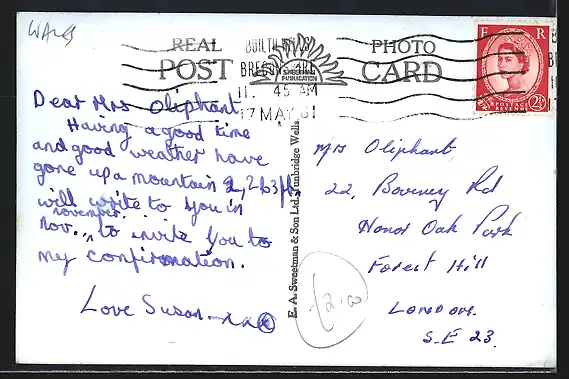 WALES
REAL PHOTO
POST CARD
SWEETMAN
PUBLICATION
BUILTH WELLS
11 45 AM
17 MAY 61
E R
POSTAGE
REVENUE
2½
Dear Mrs Oliphant,
Having a good time
and good weather have
gone up a mountain 2,263ft,
will write to you in
november.
Nov.. to invite you to
my confirmation.
Love Susan xxx
E. A. Sweetman & Son Ltd. Tunbridge Wells.
Mrs Oliphant,
22, Boveney Rd
Honor Oak Park
Forest Hill
London.
S.E 23.
2.00